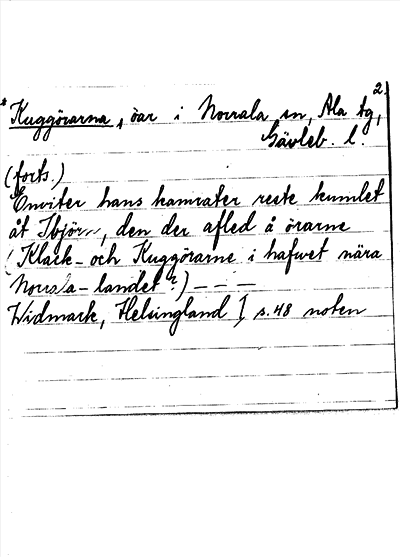 2.
Kuggörarna, öar i Norrala sn, Ala tg,
Gävleb. l.
(forts.)
Enviter hans kamrater reste kumlet
åt Tbjörn, den der afled å örarne
(Klack- och Kuggörarne i hafwet nära
Norrala-landet?) — — —
Widmark, Helsingland I, s. 48 noten